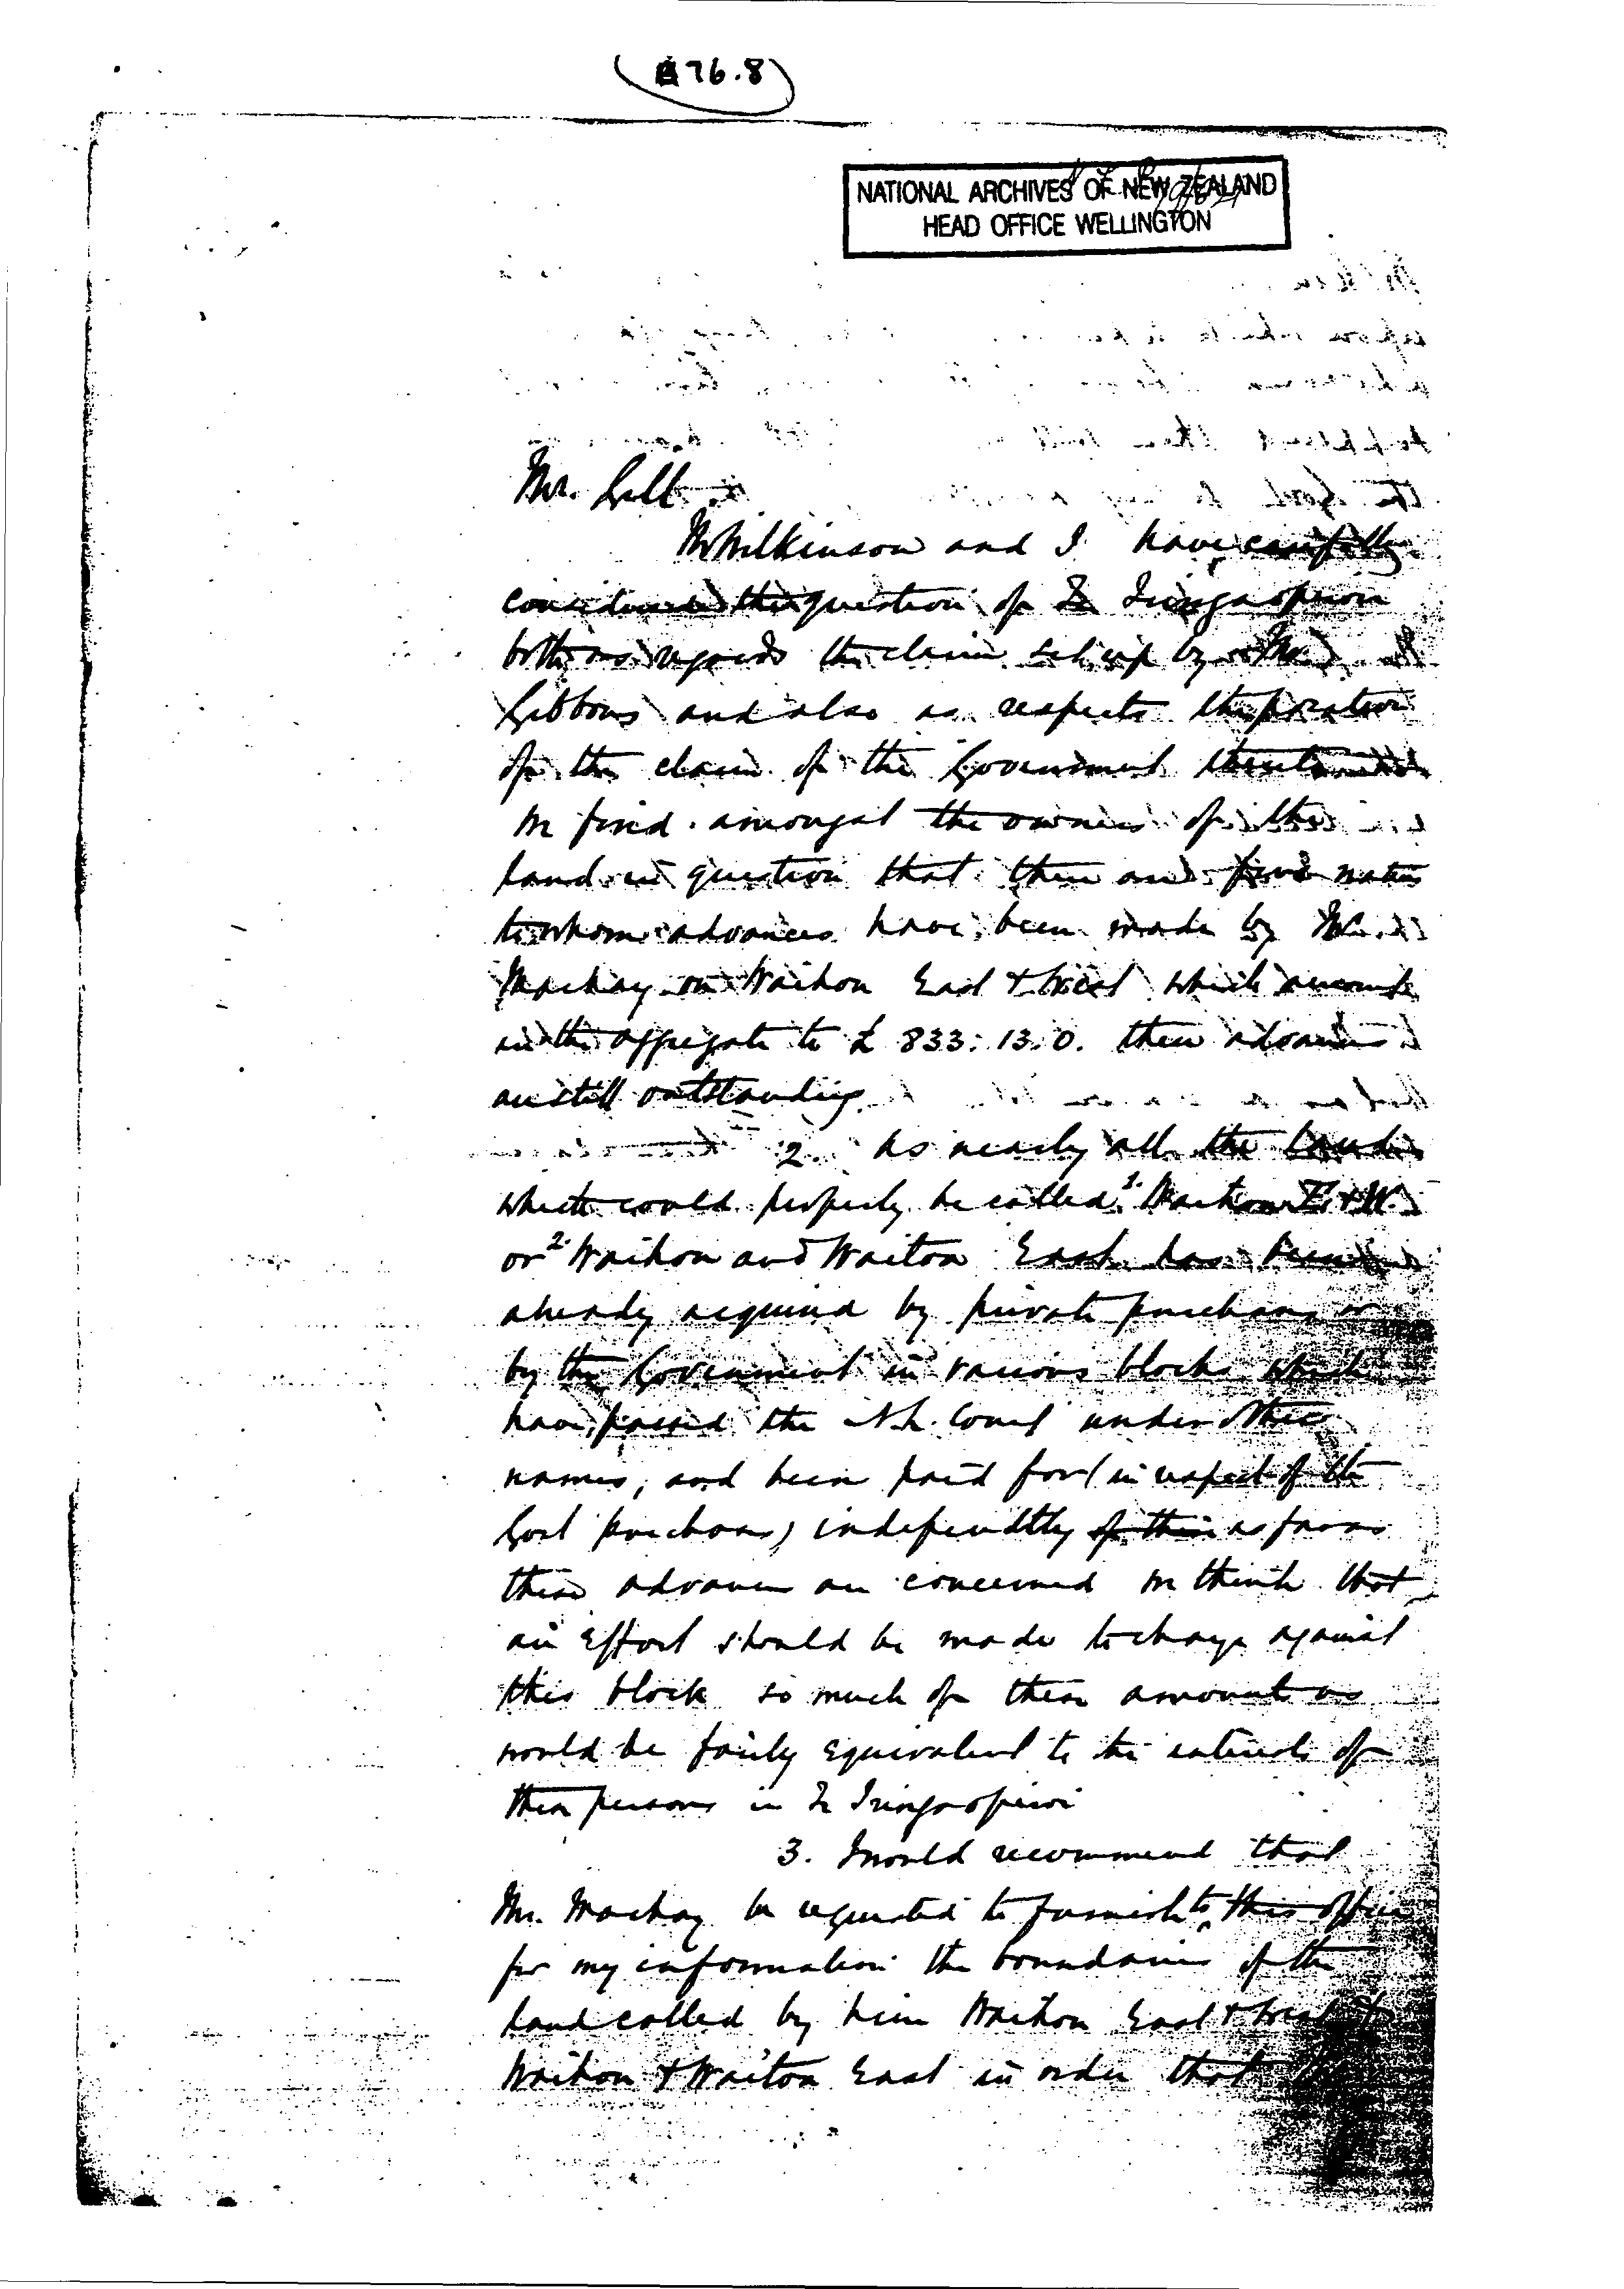 A76.8
NATIONAL ARCHIVES OF NEW ZEALAND
HEAD OFFICE WELLINGTON
Mr. Gill
Mr Wilkinson and I have carefully
considered the question of Te Iringaopirori
both as regards the claim set up by Mr.
Gibbons and also as respects the position
of the claim of the Government thereto
We find amongst the owners of the
land in question that there are five natives
to whom advances have been made by Mr.
Mackay on Waihou East & West which amounts
in the aggregate to £ 833:13.0. these advances
are still outstanding
2. As nearly all the land
which could properly be called 1. Waihou E & W.
or 2. Waihou and Waitoa East has been
already acquired by private purchase or
by the Government in various blocks which
have passed the N.L. Court under other
names, and been paid for (in respect of the
Govt purchases) independtly as far as
these advances are concerned we think that
an effort should be made to charge against
this block so much of these amounts as
would be fairly equivalent to the interests of
these persons in Te Iringaopirori
3. I would recommend that
Mr. Mackay be requested to furnish to this office
for my information the boundaries of the
land called by him Waihou East & West &
Waihou & Waitoa East in order that